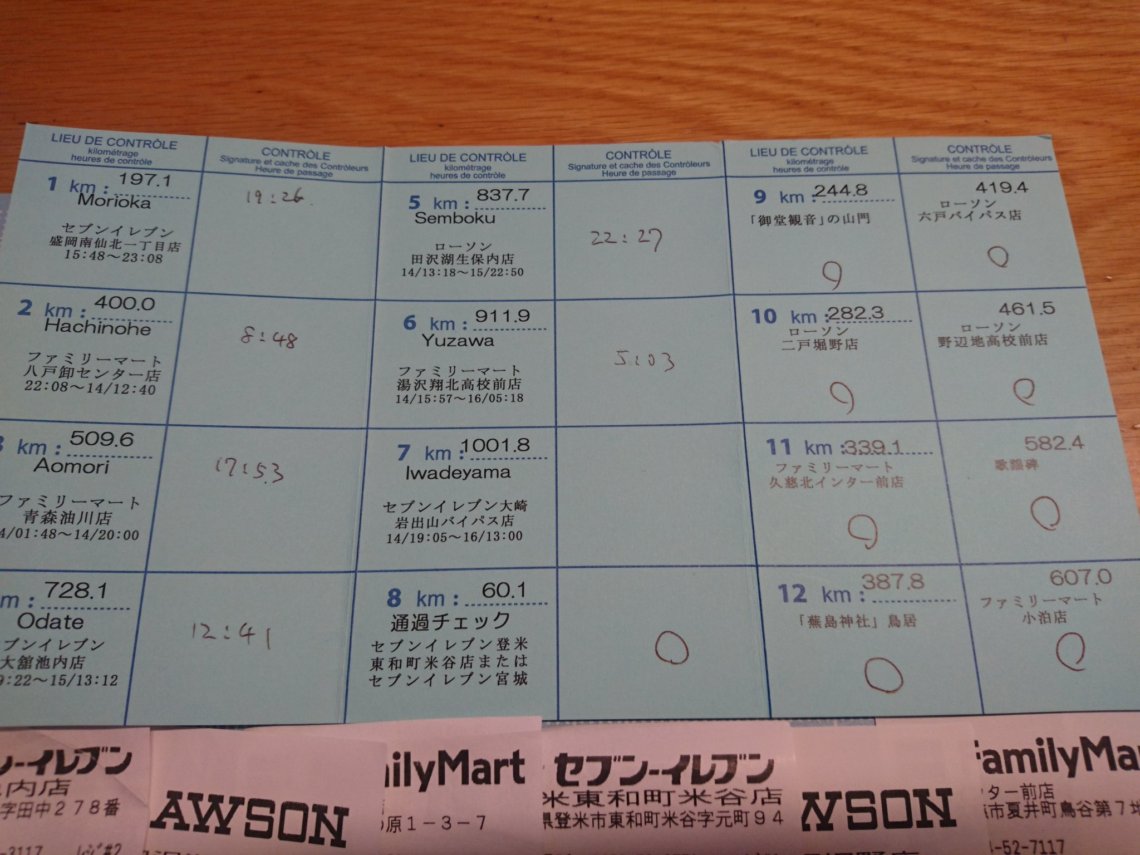 LIEU DE CONTRÔLE
kilométrage
heures de contrôle
CONTRÔLE
Signature et cache des Contrôleurs
Heure de passage
1 km : 197.1
Morioka
セブンイレブン
盛岡南仙北一丁目店
15:48～23:08
19:26
2 km : 400.0
Hachinohe
ファミリーマート
八戸卸センター店
22:08～14/12:40
8:48
km : 509.6
Aomori
ファミリーマート
青森油川店
4/01:48～14/20:00
17:53
m : 728.1
Odate
ブンイレブン
大舘池内店
9:22～15/13:12
12:41
LIEU DE CONTRÔLE
kilométrage
heures de contrôle
CONTRÔLE
Signature et cache des Contrôleurs
Heure de passage
5 km : 837.7
Semboku
ローソン
田沢湖生保内店
14/13:18～15/22:50
22:27
6 km : 911.9
Yuzawa
ファミリーマート
湯沢翔北高校前店
14/15:57～16/05:18
5:03
7 km : 1001.8
Iwadeyama
セブンイレブン大崎
岩出山バイパス店
14/19:05～16/13:00
8 km : 60.1
通過チェック
セブンイレブン登米
東和町米谷店または
セブンイレブン宮城
LIEU DE CONTRÔLE
kilométrage
heures de contrôle
CONTRÔLE
Signature et cache des Contrôleurs
Heure de passage
9 km : 244.8
「御堂観音」の山門
419.4
ローソン
六戸バイパス店
10 km : 282.3
ローソン
二戸堀野店
461.5
ローソン
野辺地高校前店
11 km : 339.1
ファミリーマート
久慈北インター前店
582.4
歌謡碑
12 km : 387.8
「蕪島神社」鳥居
607.0
ファミリーマート
小泊店
ン-イレブン
内店
字田中278番
AWSON
ilyMart
原1-3-7
セブン-イレブン
米東和町米谷店
県登米市東和町米谷字元町94
WSON
FamilyMa
ター前店
市夏井町鳥谷第7
-52-7117